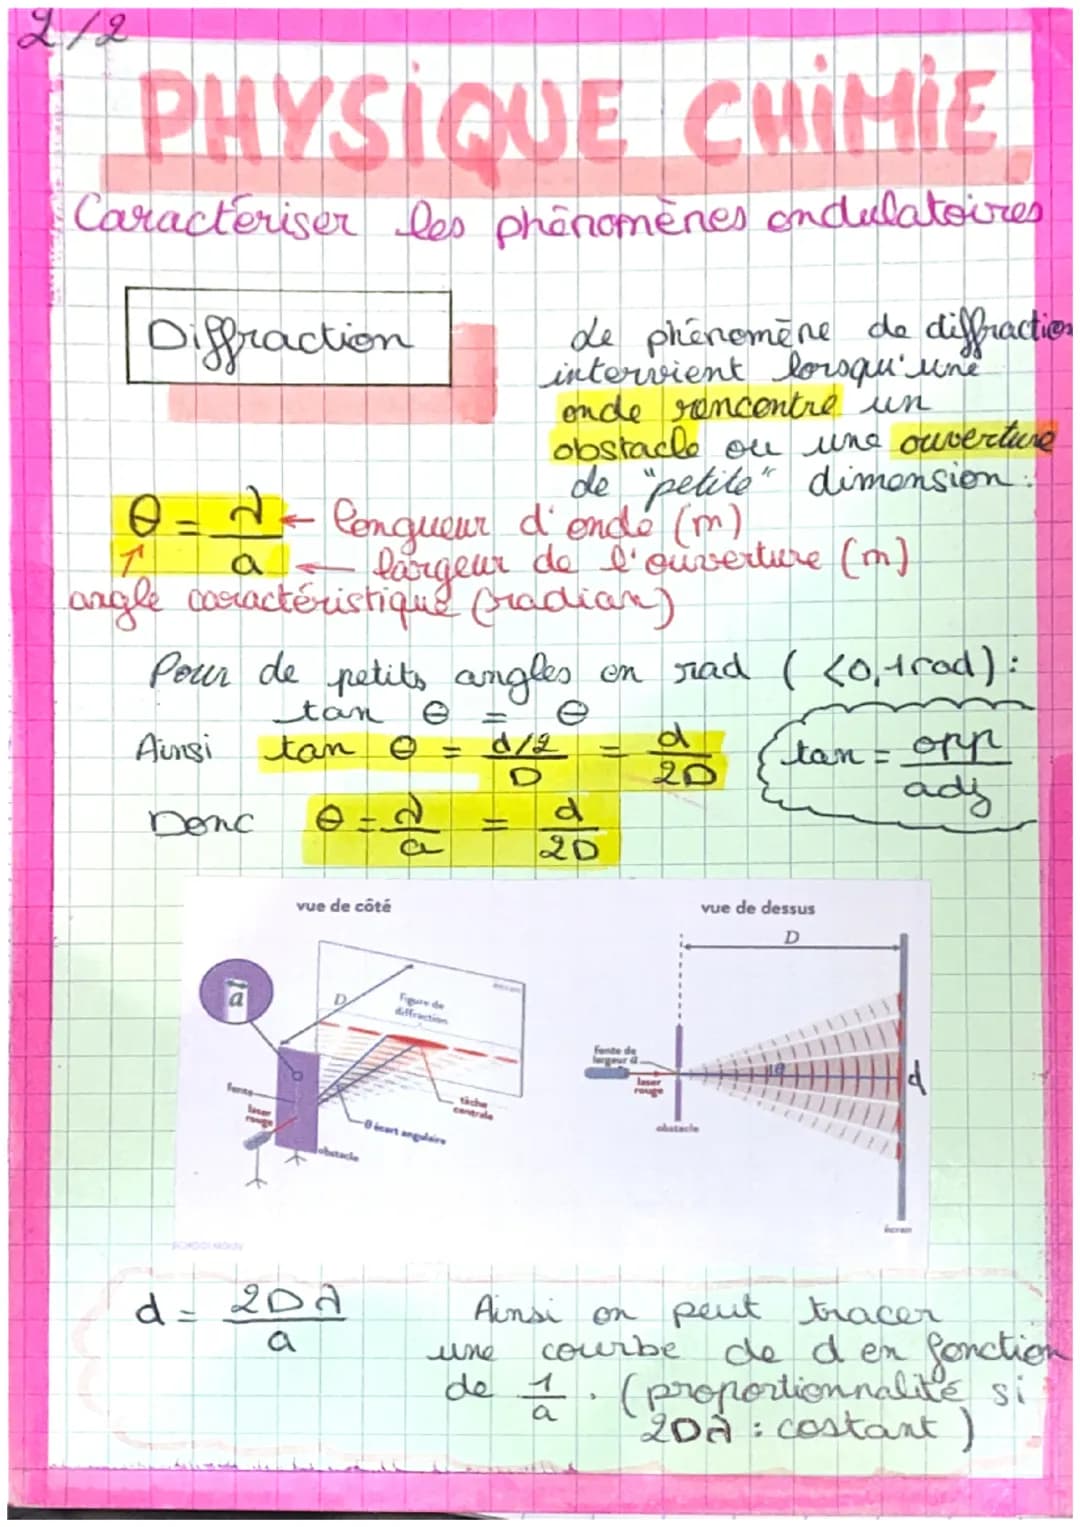 2/2
PHYSIQUE CHIMIE
Caractériser les phénomènes ondulatoires
Diffraction
Le phénomène de diffraction
intervient lorsqu'une
onde rencontre un
obstacle ou une ouverture
de "petite" dimension.
θ = λ/a
← longueur d'onde (m)
← largeur de l'ouverture (m)
↑
angle caractéristique (radian)
Pour de petits angles en rad ( <0,1rad) :
tan θ = θ
Ainsi tan θ = (d/2)/D = d/2D
tan = opp/adj
Donc θ = λ/a = d/2D
vue de côté
vue de dessus
D
a
D
écran
Figure de
diffraction
fente
laser
rouge
tâche
centrale
θ écart angulaire
obstacle
fente de
largeur a
laser
rouge
θ
d
obstacle
écran
d = 2Dλ/a
Ainsi on peut tracer
une courbe de d en fonction
de 1/a . (proportionnalité si
2Dλ : costant )